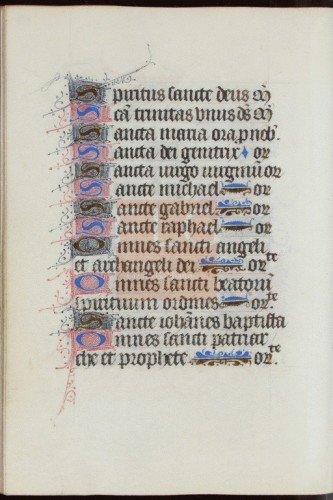 Spiritus sancte deus m̄
Sc̄a trinitas vnus ds̄ m̄
Sancta maria ora p nob᷒
Sancta dei genitrix or
Sancta uirgo uirginū or
Sancte michael or
Sancte gabriel or
Sancte raphael or
Omnes sancti angeli
et archangeli dei orte
Omnes sancti beatorū
spirituum ordines orte
Sancte iohānes baptista
Omnes sancti patriar
che et prophete orte